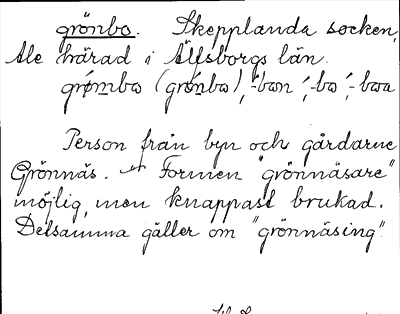 grönbo. Skepplanda socken,
Ale härad i Älfsborgs län.
grömbo (grönbo), -bon, -bo, -boa
Person från byn och gårdarne
Grönnäs. — Formen "grönnäsare"
möjlig, men knappast brukad.
Detsamma gäller om "grönnäsing".